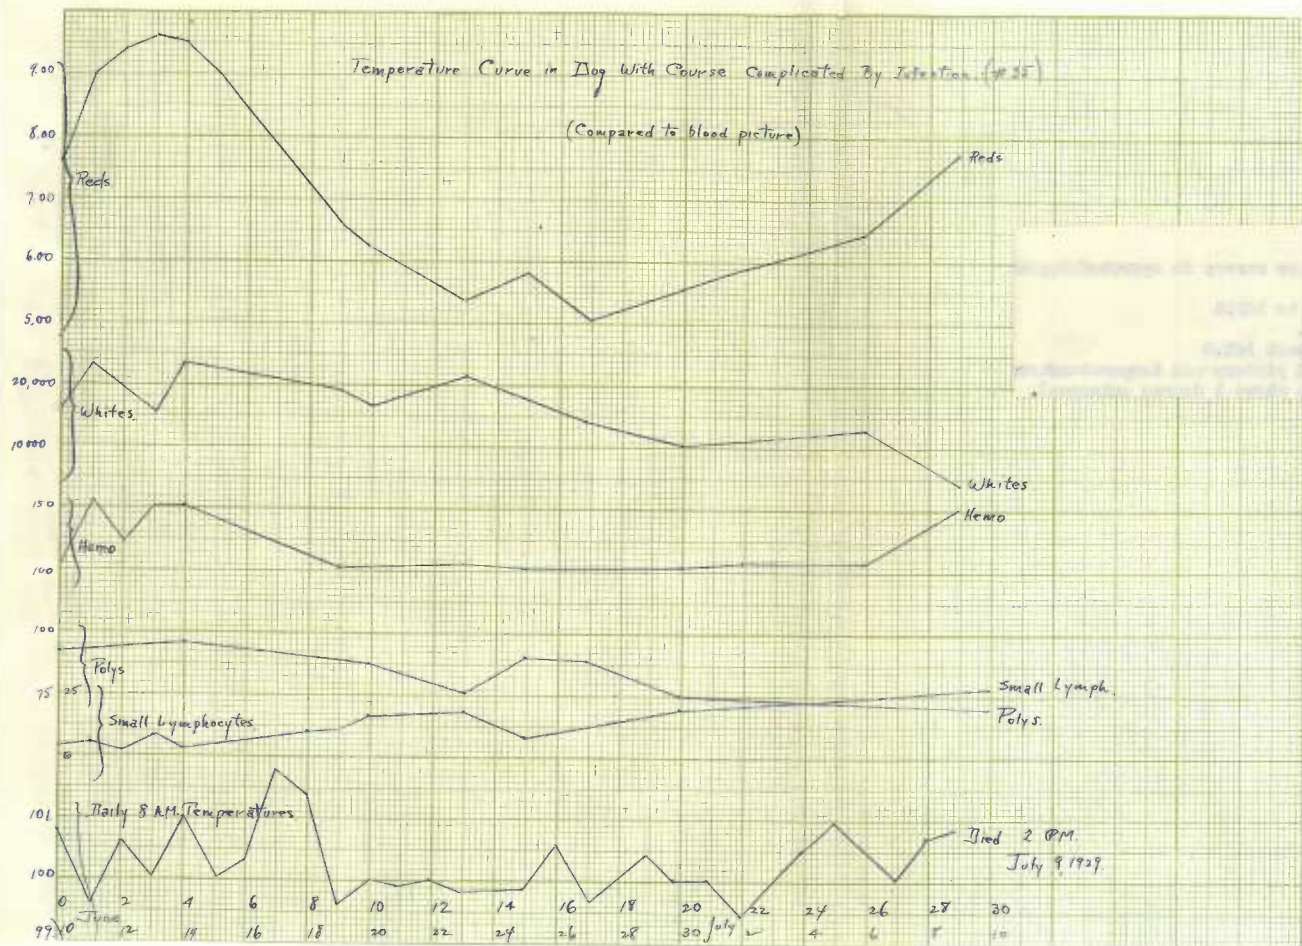 Temperature Curve in Dog With Course Complicated By Intention (#25)
(Compared to blood picture)
9.00
8.00
Reds
7.00
6.00
5.00
Reds
20,000
Whites
10000
Whites
150
Hemo
100
Hemo
100
Polys
75 25
Small Lymphocytes
0
Small Lymph.
Polys.
101
Daily 8 A.M. Temperatures
100
Died 2 P.M.
July 9 1929.
0 2 4 6 8 10 12 14 16 18 20 22 24 26 28 30
June
99 10 12 14 16 18 20 22 24 26 28 30 July 2 4 6 8 10